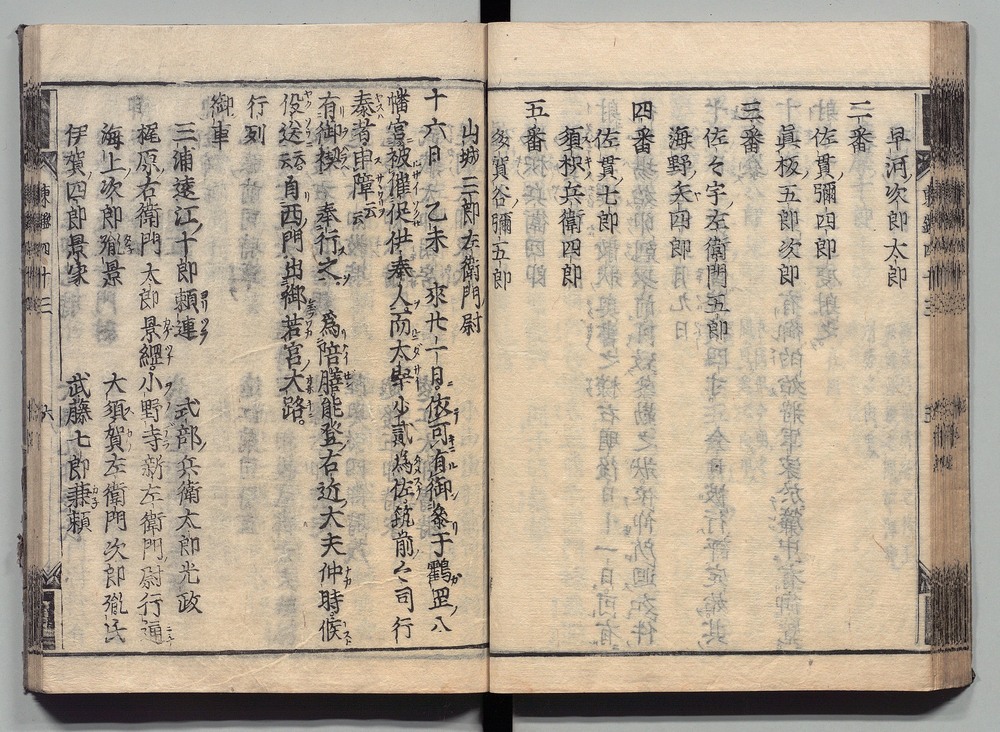 早河次郎太郎
二番
佐貫彌四郎
眞板五郎次郎
三番
佐々宇左衛門五郎
海野矢四郎
四番
佐貫七郎
須枳兵衛四郎
五番
多賀谷彌五郎
山城三郎左衛門尉
十六日乙未來廿一日依可有御參于鸖罡八
幡宮被催促供奉人而太宰少貳為佐筑前々司行
泰者申障云云
有御禊奉行之為陪膳能登右近大夫仲時候
役送云云自西門出御若宮大路
行列
御車
三浦遠江十郎頼連 式部兵衛太郎光政
梶原右衛門太郎景綱 小野寺新左衛門尉行通
海上次郎胤景 大須賀左衛門次郎胤氏
伊賀四郎景家 武藤七郎兼頼
東鑑四十三 六